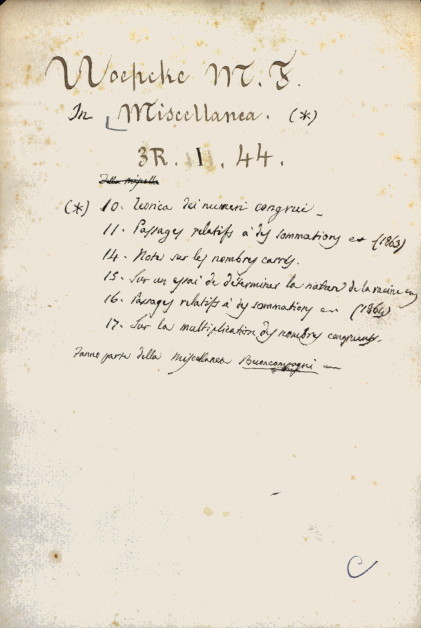 Woepcke M. F.
In Miscellanea. (*)
3R. I. 44.
(*) 10. Teorica dei numeri congrui –
11. Passages relatifs à des sommations et (1863)
14. Note sur les nombres carrés.
15. Sur un essai de déterminer la nature de la racine
16. Passages relatifs à des sommations (1864)
17. Sur la multiplication des nombres congruents.
Fanno parte della Miscellanea Buoncompagni —
C